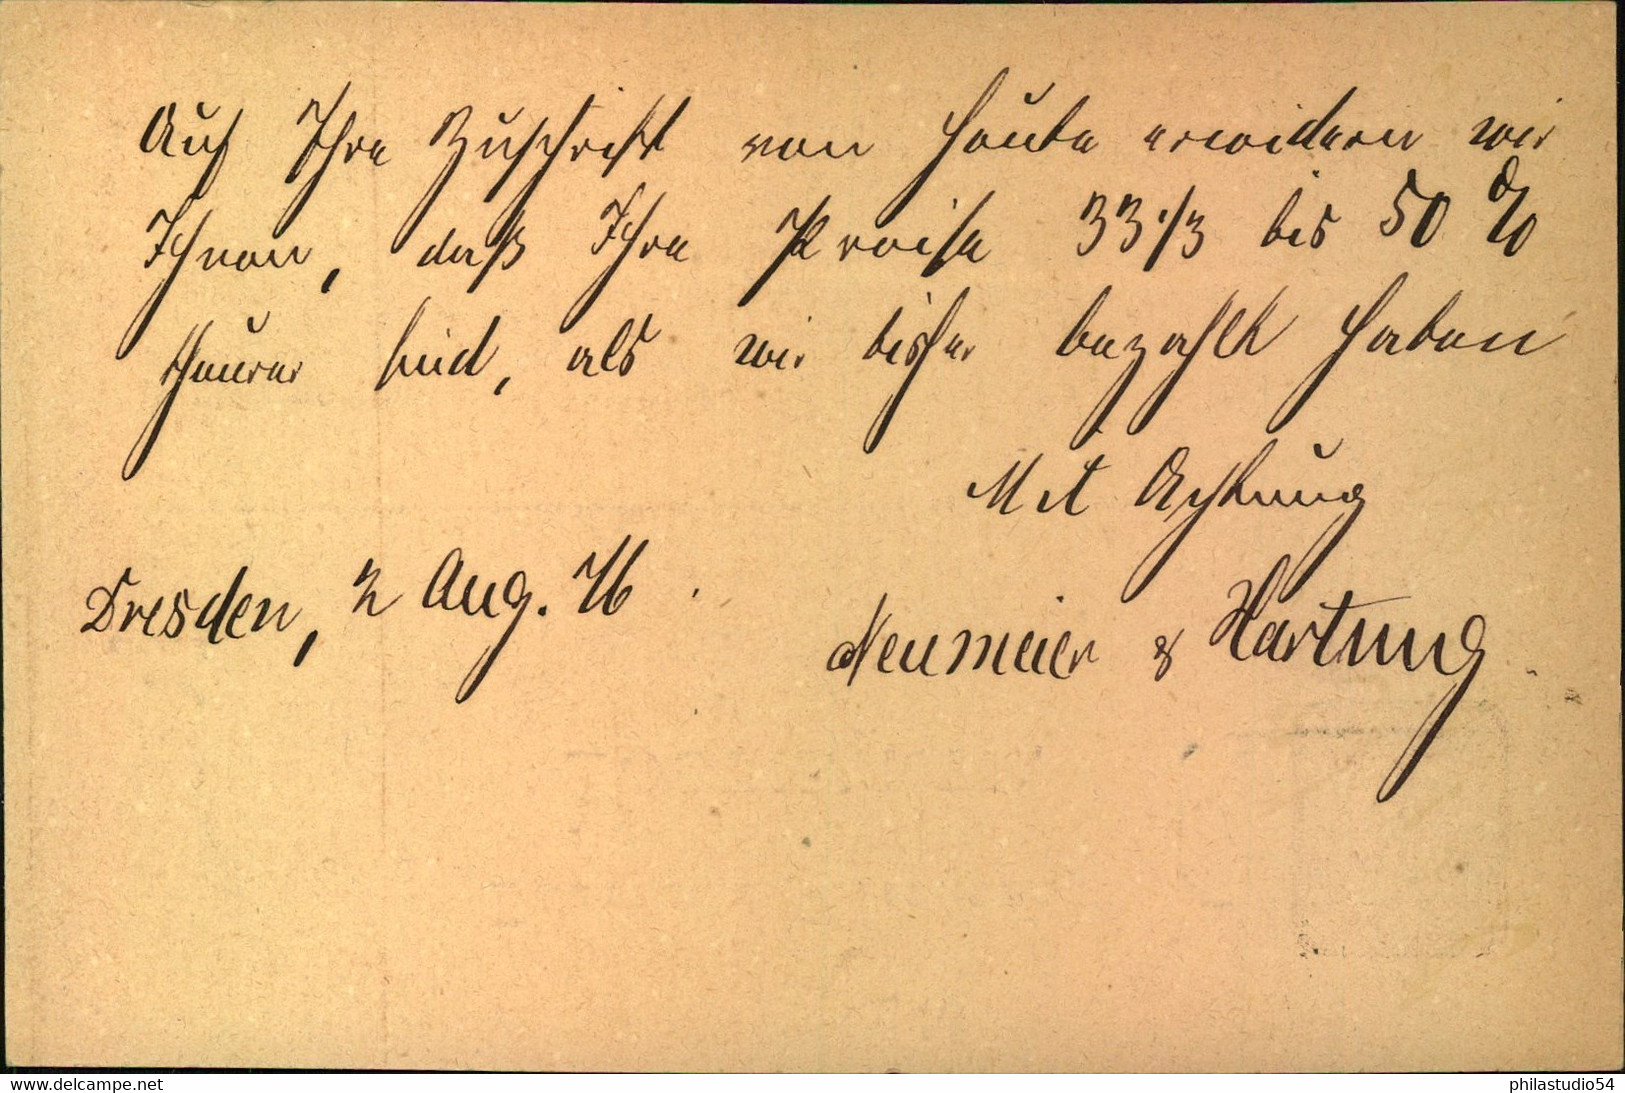 Auf Ihre Zuschrift von heute erwidern wir
Ihnen, daß Ihre Preise 33 1/3 bis 50 %
theurer sind, als wir bisher bezahlt haben
Mit Achtung
Dresden, 2 Aug. 76.
Neumeier & Hartung.
www.delcampe.net
philastudio54